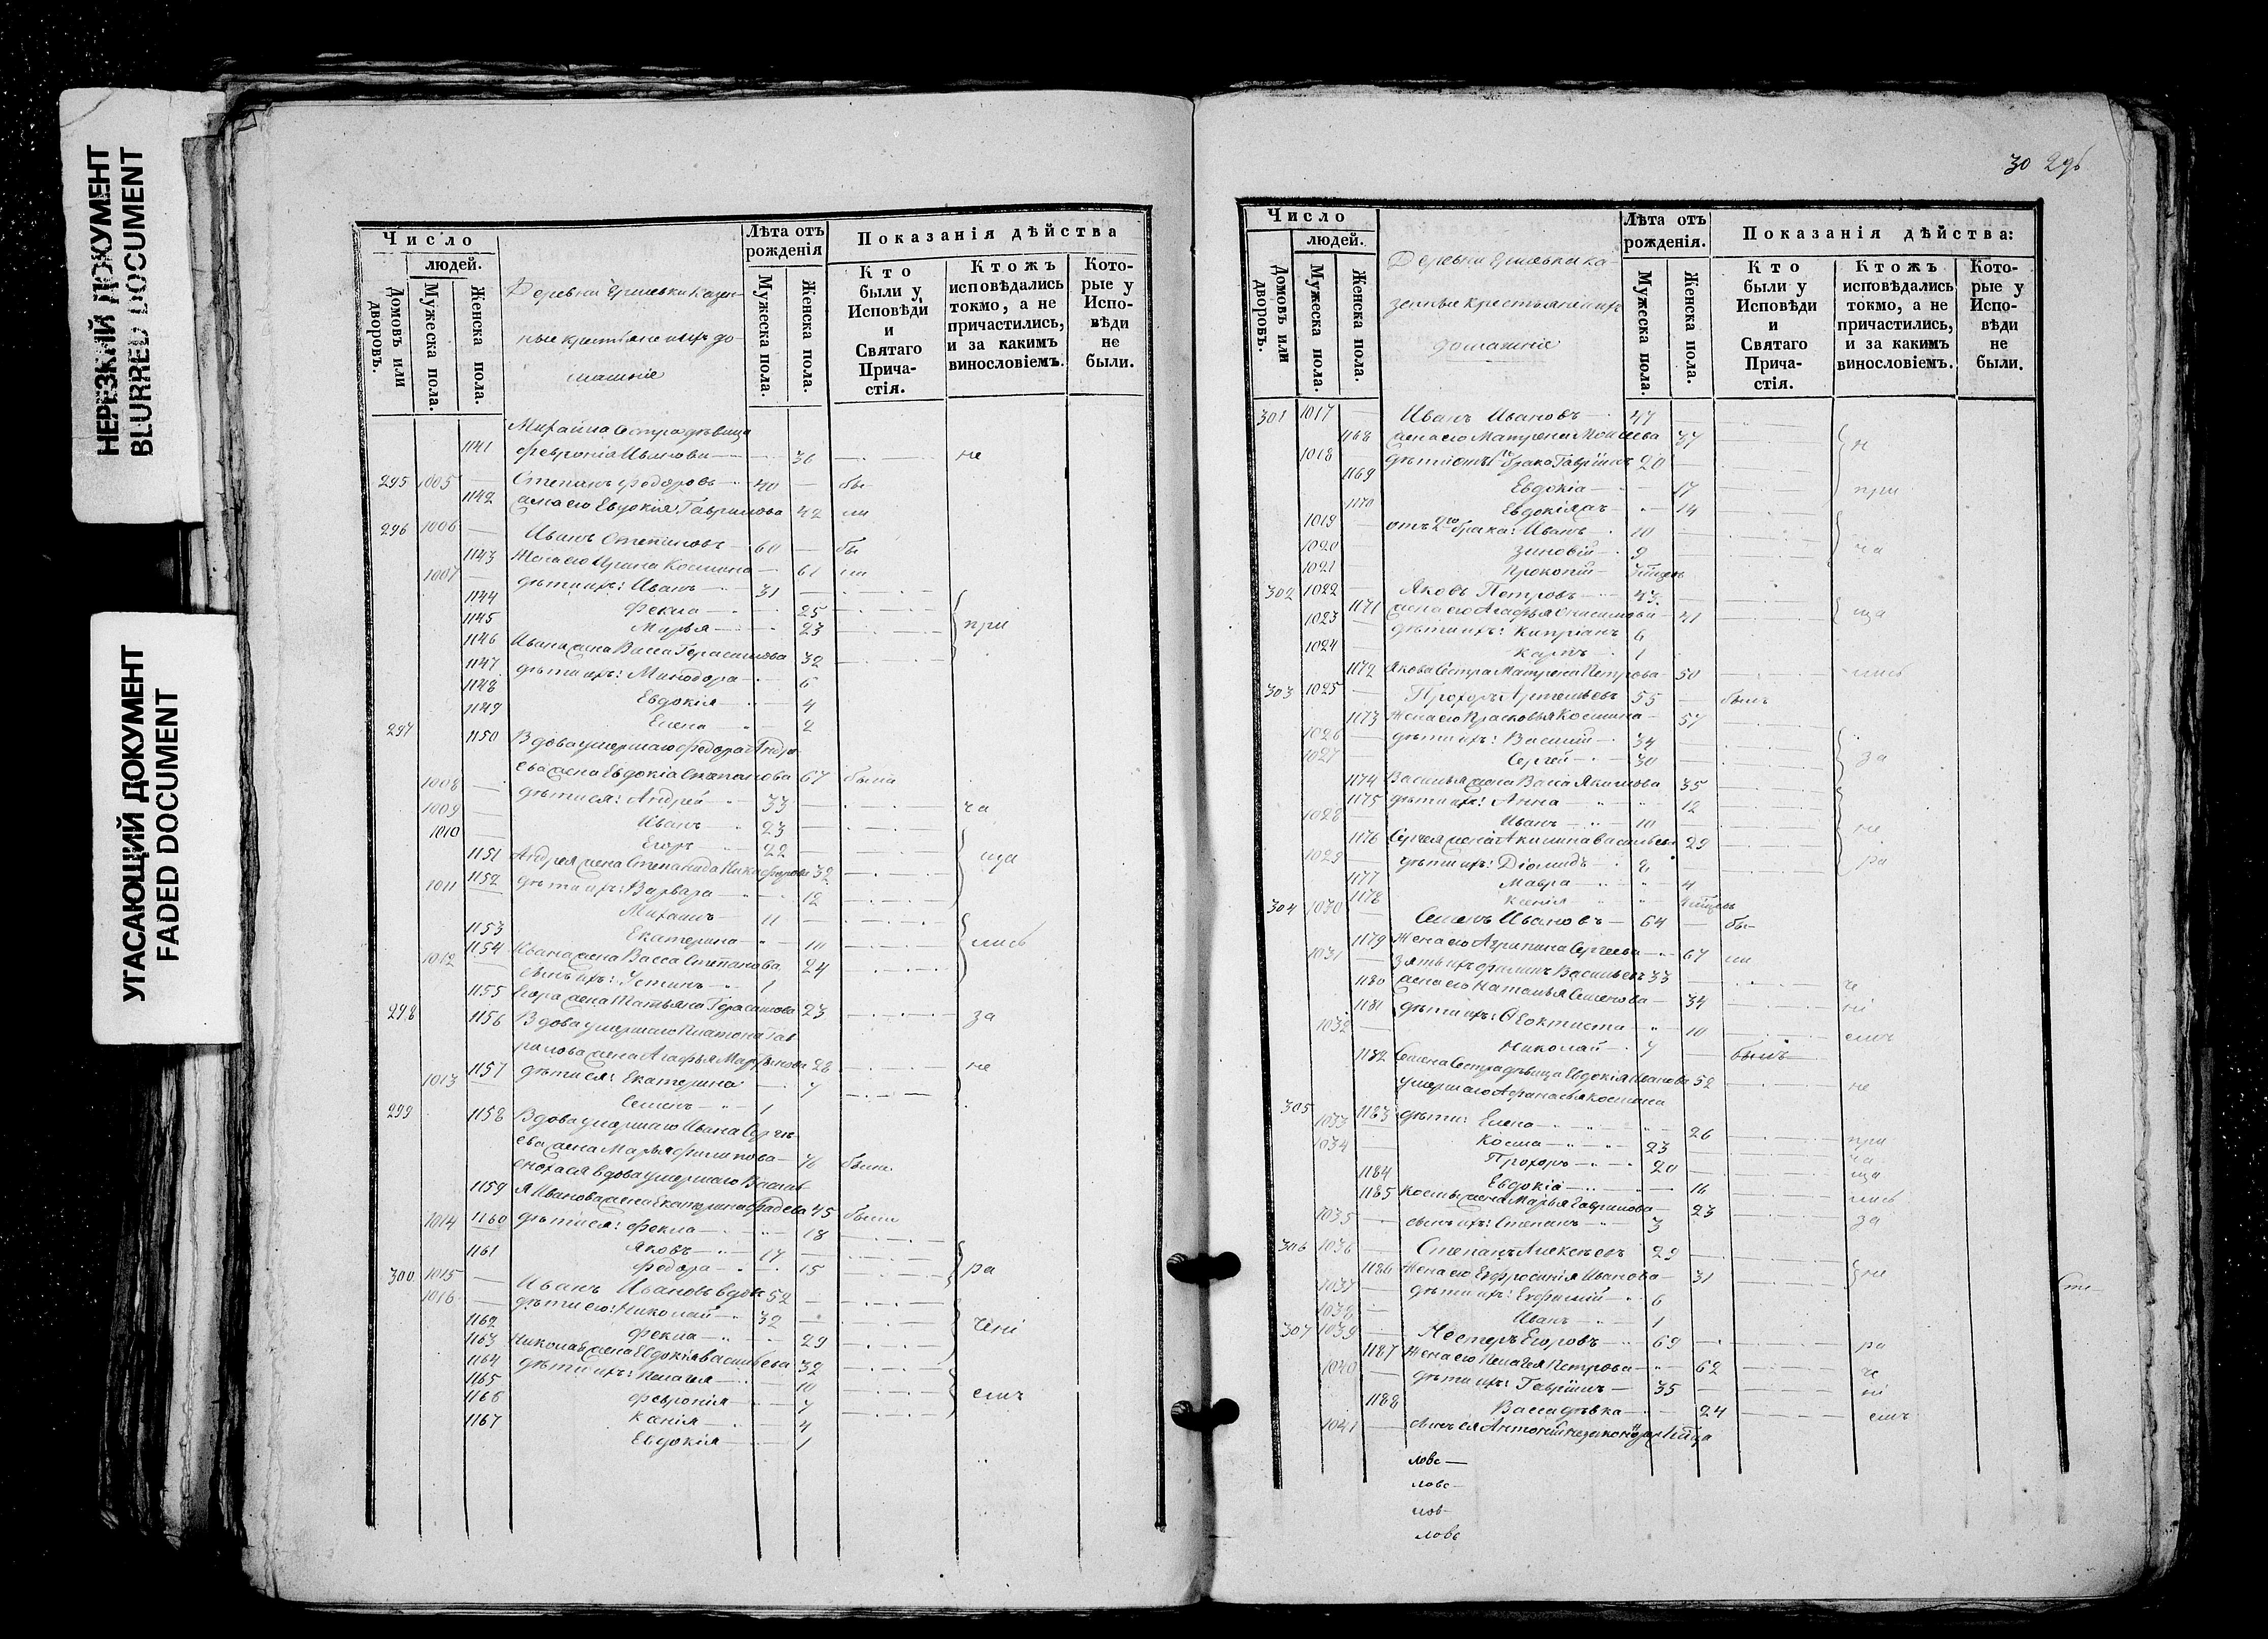 НЕРЕЗКИЙ ДОКУМЕНТ
BLURRED DOCUMENT
УГАСАЮЩИЙ ДОКУМЕНТ
FADED DOCUMENT
Число
людей.
Домовъ или дворовъ.
Мужеска пола.
Женска пола.
Деревни Казен-
ные крестьяне и ихъ до-
машніе
Лѣта отъ рожденія
Мужеска пола.
Женска пола.
Показанія дѣйства
Кто были у Исповѣди и Святаго Прича-стія.
Ктожъ исповѣдались токмо, а не причастились, и за какимъ винословіемъ.
Кото-рые у Испо-вѣди не были.
Михаила сестра дѣвица
1141 Февронія Иванова 36 не
295 1005 Степанъ Федоровъ 40 бы
1142 жена его Евдокія Гаврилова 42 ли
296 1006 Иванъ Степановъ 60 бы
1143 Жена его Ирина Космина 61 ли
1007 дѣти ихъ: Иванъ 31
1144 Фекла 25
1145 Марья 23 при
1146 Ивана жена Васса Герасимова 32
1147 дѣти ихъ: Минодора 6
1148 Евдокія 4
1149 Елена 2
297 1150 Вдова умершаго Федора Андре
ева жена Евдокіа Степанова 67 была
1008 дѣти ея: Андрей 33 ча
1009 Иванъ 23
1010 Егоръ 22
1151 Андрея жена Степанида Никифорова 32 ща
1152 дѣти ихъ: Варвара 12
1011 Михаилъ 11
1153 Екатерина 10 лись
1154 Ивана жена Васса Степанова 24
1012 сынъ ихъ: Устинъ 1
1155 Егора жена Татьяна Герасимова 23 за
298 1156 Вдова умершаго Платона Гав
рилова жена Агафья Марѳ 28 не
1157 дѣти ея: Екатерина 7
1013 Семенъ 1
299 1158 Вдова умершаго Ивана Сергѣ
ева жена Марья Филипова 76 была
сноха ея вдова умершаго Василь
1159 я Иванова жена Екатерина 45 была
1160 дѣти ея: Фекла 18
1014 Яковъ 17
1161 Федора 15 ра
300 1015 Иванъ Ивановъ вдов 52
1016 дѣти его: Николай 32
1162 Фекла 29 чені
1163 Николая жена Евдокія Васильева 32
1164 дѣти ихъ: Пелагея 10
1165 Февронія 7 емъ
1166 Ксенія 4
1167 Евдокія 1
30 296
Число
людей.
Домовъ или дворовъ.
Мужеска пола.
Женска пола.
Деревни ка-
зенные крестьяне и ихъ
домашніе
Лѣта отъ рожденія.
Мужеска пола.
Женска пола.
Показанія дѣйства:
Кто были у Исповѣди и Святаго Прича-стія.
Ктожъ исповѣдались токмо, а не причастились, и за какимъ винословіемъ.
Кото-рые у Испо-вѣди не были.
301 1017 Иванъ Ивановъ 47
1168 жена его Матрена Моисеева 37 н
1018 дѣти отъ 1го брака Гавріилъ 20
1169 Евдокіа 17 при
1170 Евдокія 14
1019 отъ 2го брака: Иванъ 10
1020 Зиновій 9 ча
1021 Прокопій
302 1022 Яковъ Петровъ 43
1171 жена его Агафья 41 ща
1023 дѣти ихъ: Кипріанъ 6
1024 Карпъ 1
1172 Якова сестра Матрена Петрова 50 лись
303 1025 Прохоръ Артемьевъ 55 былъ
1173 Жена его Прасковья Космина 57
1026 дѣти ихъ: Василій 34
1027 Сергей 30 за
1174 Василья жена Васса Якимова 35
1175 дѣти ихъ: Анна 12
1028 Иванъ 10 не
1176 Сергея жена Акилина Васильева 29
1029 дѣти ихъ: Діомидъ 6 ра
1177 Мавра 4
1178 Ксенія
304 1030 Семенъ Ивановъ 64 бы
1179 Жена его Агрипина Сергеева 67 ли
1031 зять ихъ Филипъ Васильевъ 33
1180 жена его Наталья Семенова 34 че
1181 дѣти ихъ: Ѳеоктиста 10 ні
1032 Николай 7 былъ емъ
1182 Семена сестра дѣвица Евдокія Иванова 52 не
305 умершаго Афанасья Космина
1183 дѣти: Елена 26 при
1033 Косма 23 ча
1034 Прохоръ 20 ща
1184 Евдокіа 16 лись
1185 Космы жена Марья Гаврилова 23
1035 сынъ ихъ: Степанъ 3 за
306 1036 Степанъ Алексѣевъ 29
1186 Жена его Евфросинія Иванова 31 не
1037 дѣти ихъ: Евфимій 6
1038 Иванъ 1
307 1039 Нестеръ Егоровъ 69 ра
1187 Жена его Пелагея Петрова 62 че
1040 дѣти ихъ: Гавріилъ 35 ні
1188 Васса дѣвка 24 емъ
1041 сынъ ея Антоній
лове
лове
лов
лове